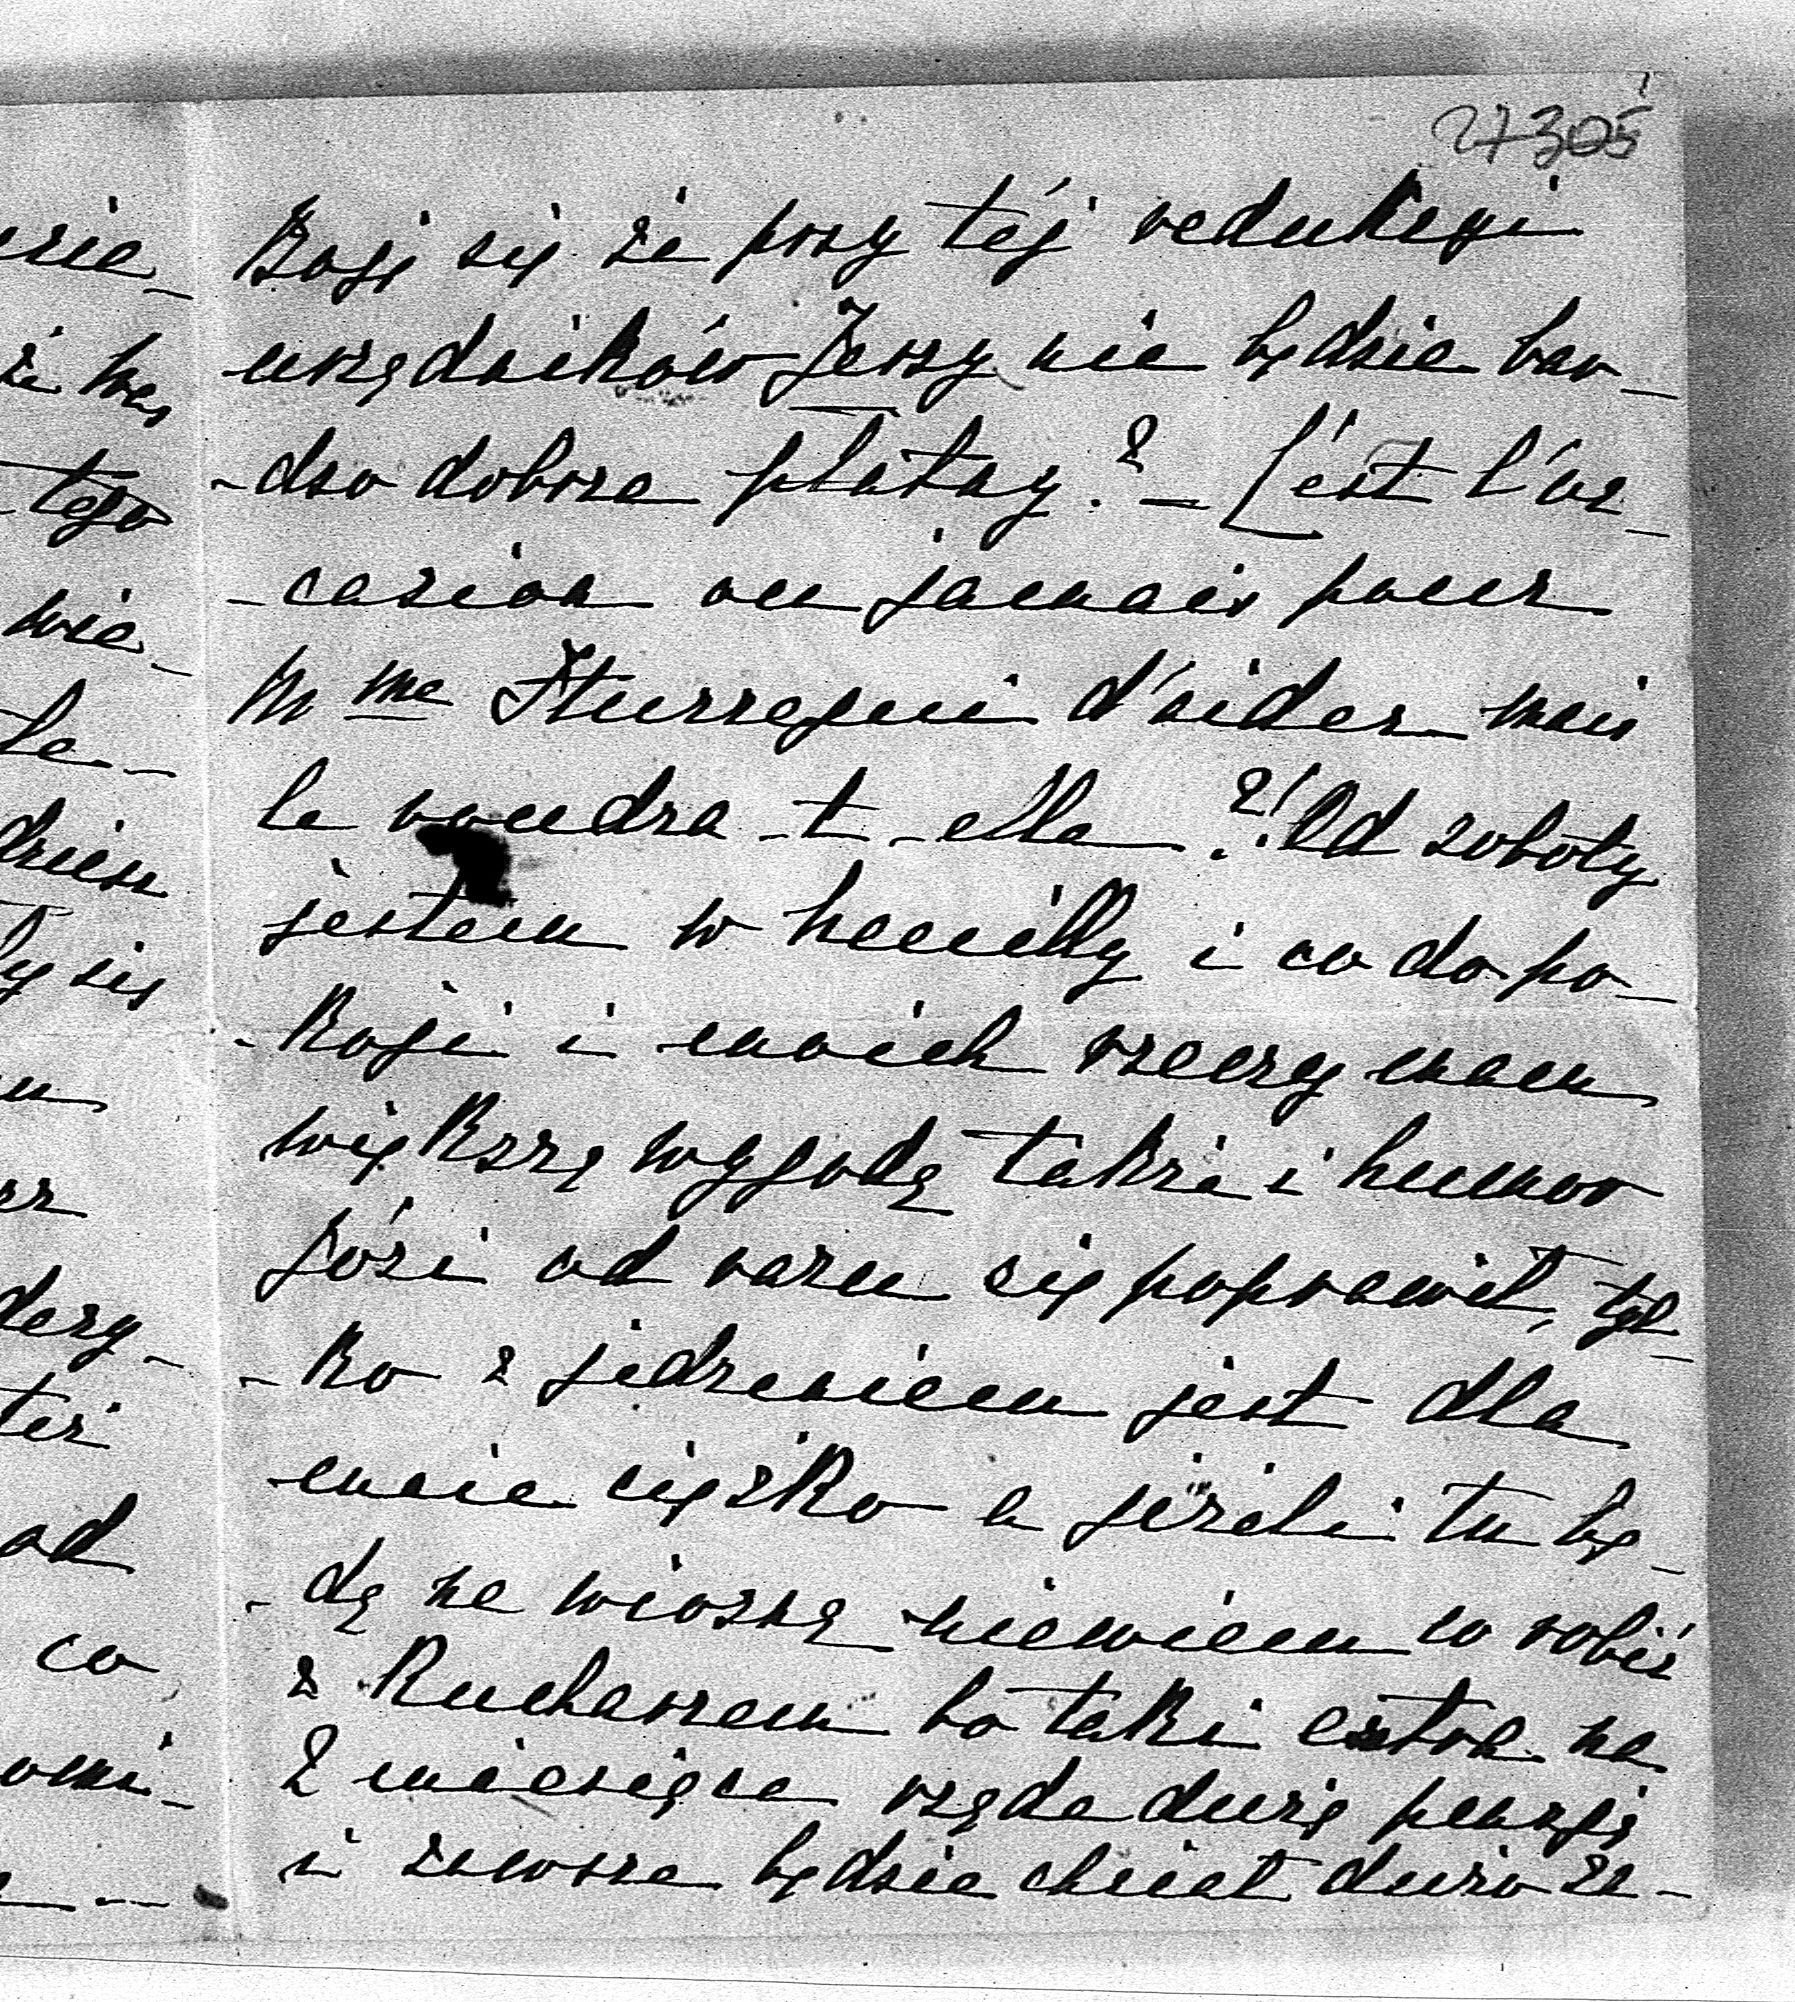 27305
Boję się że przy téj redukcyi
urzędników Jerzy nie będzie bar-
-dzo dobrze płatny? – C'est l'oc-
-casion ou jamais pour
Mme Yturregui d'aider mais
le voudra-t-elle?! Od soboty
jestem w Neuilly i co do po-
-koji i moich rzeczy mam
większą wygodę także i humor
Józi od razu się poprawił, tyl-
-ko z jedzeniem jest dla
mnie ciężko a jeżeli tu bę-
-dę na wiosnę niewiem co robić
z kucharzem bo taki extra na
2 miesiące rząda dużę pensję
i zawsze będzie chciał dużo ze-
rzie-
że we
tego
wie-
le-
dzien
ły się
dery-
też
od
co
omi-